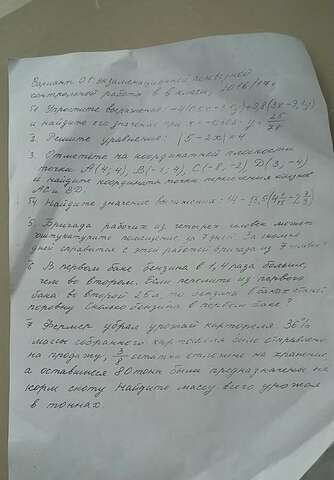 Вариант 01 экзаменационной переводной
контрольной работы в 6 классе, 2016/17г.
1. Упростите выражение:
и найдите его значение при
2. Решите уравнение: |5-2x|=4
3. Отметьте на координатной плоскости
точки A(4; 4), B(-1; 4), C(-8; -2) D(3; -4)
и найдите координаты точки пересечения отрезков
AC и BD.
4 Найдите значение выражения: 14 -
5. Бригада рабочих из четырех человек может
оштукатурить помещение за 7 дней. За сколько
дней справится с этой работой бригада из 7 человек?
6 В первом баке бензина в 1,4 раза больше,
чем во втором. Если перелить из первого
бака во второй 25 л, то бензина в баках станет
поровну. Сколько бензина в первом баке?
7 Фермер убрал урожай картофеля. 36%
массы собранного картофеля было отправлено
на продажу, 3/8 остатка отложено на хранение,
а оставшиеся 80 тонн были предназначены на
корм скоту. Найдите массу всего урожая
в тоннах.